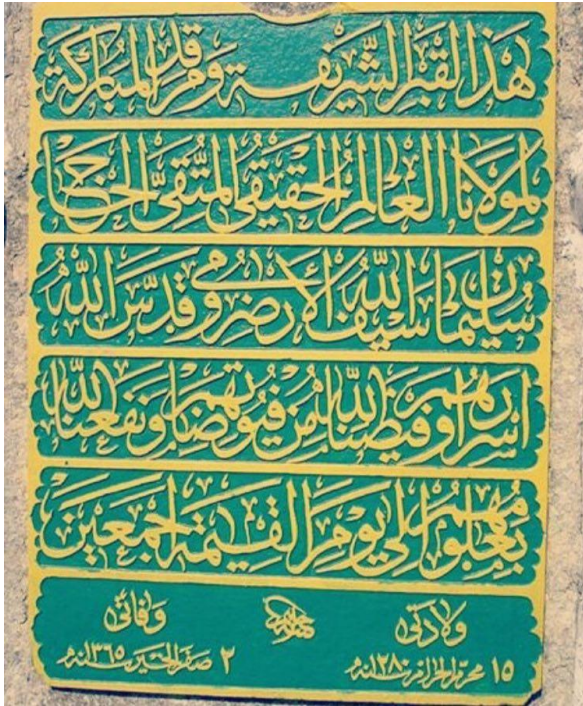 هذا القبر الشريفة ومرقد المباركة
لمولانا العالم الحقيقي المتقي الحاج
سليمان سيف الله الأرضرومي وقدس الله
اسرارهم وفيضنا الله من فيوضاتهم ونفعنا الله
بعلومهم الى يوم القيمة اجمعين
ولادتى وفاتى
١٥ محرم الحرام ١٢٨٠ ٢ صفر الخير ١٣٦٥